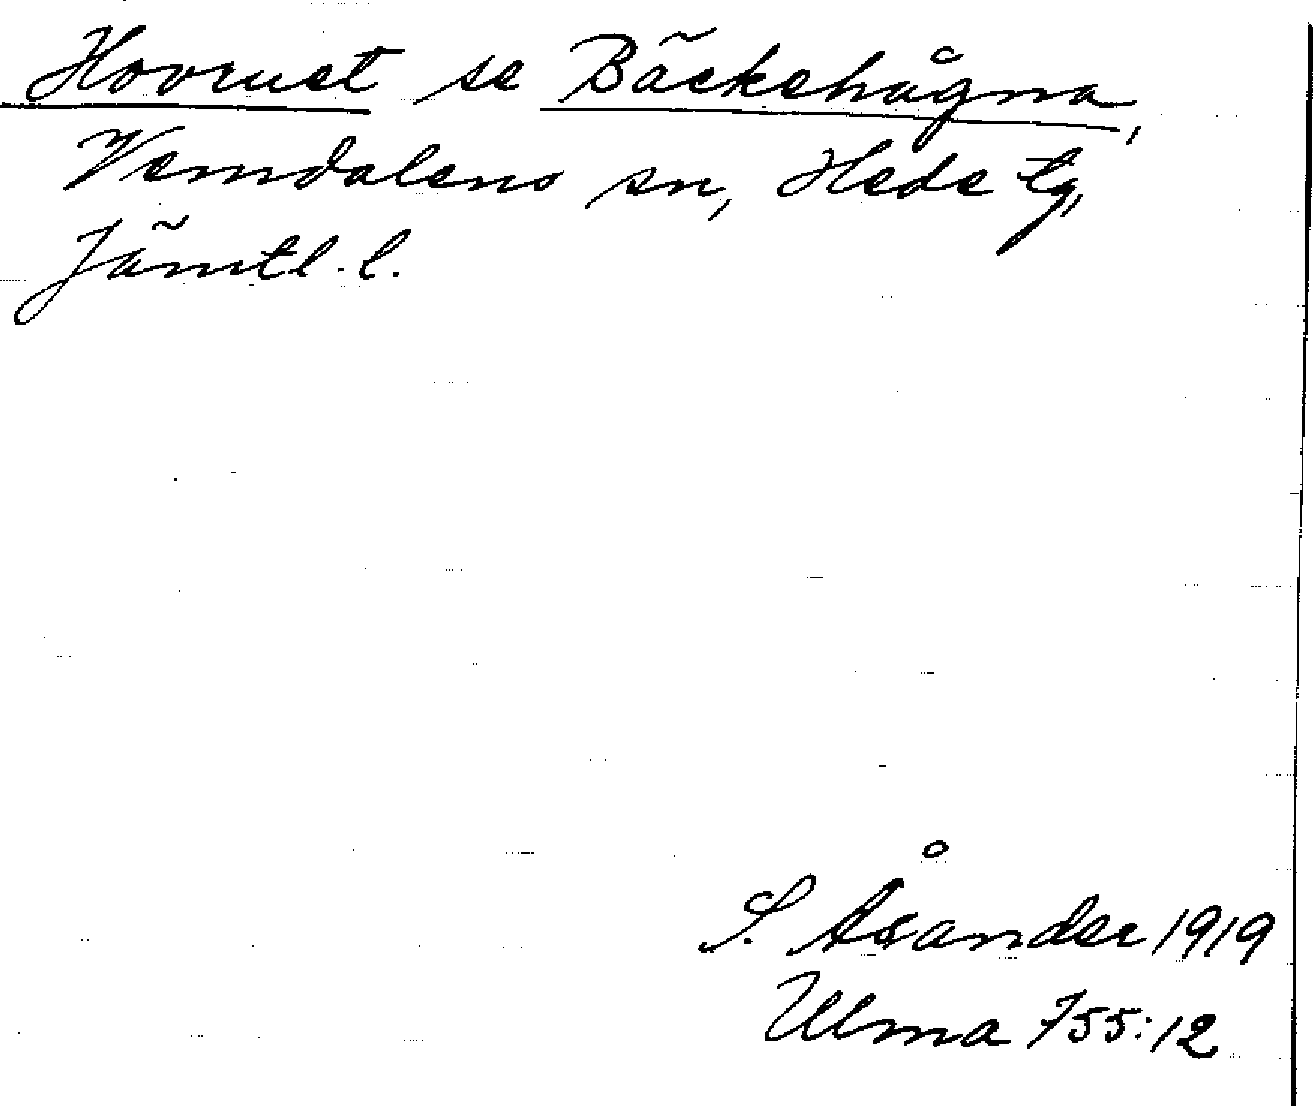 Hovruet se Bäckehågna,
Vemdalens sn, Hede tg,
Jämtl. l.
S. Åsander 1919
Ulma 755:12